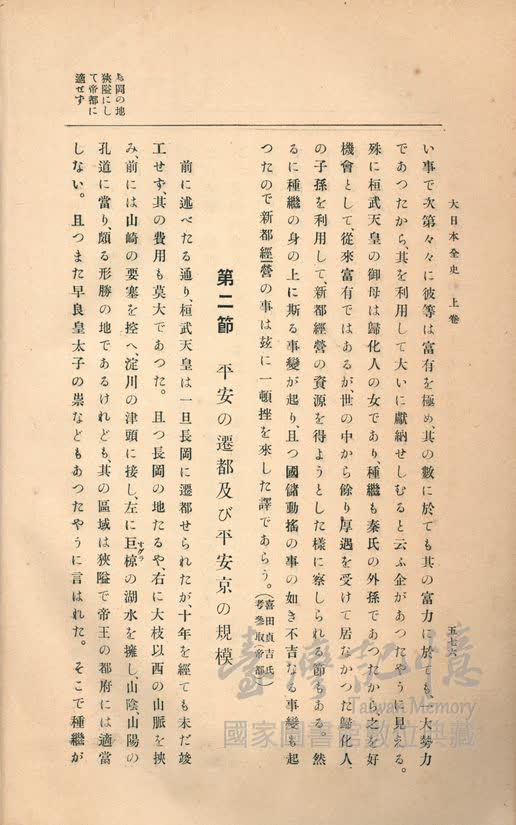 大日本全史　上卷
五七六
い事で次第々々に彼等は富有を極め、其の數に於ても其の富力に於ても、大勢力
であつたから、其を利用して大いに獻納せしむると云ふ企があつたやうに見える。
殊に桓武天皇の御母は歸化人の女であり、種繼も秦氏の外孫であつたから之を好
機會として、從來富有ではあるが、世の中から餘り厚遇を受けて居なかつた歸化人
の子孫を利用して、新都經營の資源を得ようとした樣に察しられる節もある。然
るに種繼の身の上に斯る事變が起り、且つ國儲動搖の事の如き不吉なる事變も起
つたので新都經營の事は玆に一頓挫を來した譯であらう。（喜田貞吉氏帝都考參取）
第二節　平安の遷都及び平安京の規模
前に述べたる通り、桓武天皇は一旦長岡に遷都せられたが、十年を經ても未だ竣
工せず其の費用も莫大であつた。且つ長岡の地たるや、右に大枝以西の山脈を挾
み、前には山崎の要塞を控へ、淀川の津頭に接し、左に巨椋の湖水を擁し、山陰山陽の
孔道に當り、頗る形勝の地であるけれども、其の區域は狹隘で帝王の都府には適當
しない。且つまた早良皇太子の祟などもあつたやうに言はれた。そこで種繼が
岡の地
狹隘にし
て帝都に
適せず
臺灣記憶
Taiwan Memory
國家圖書館數位典藏